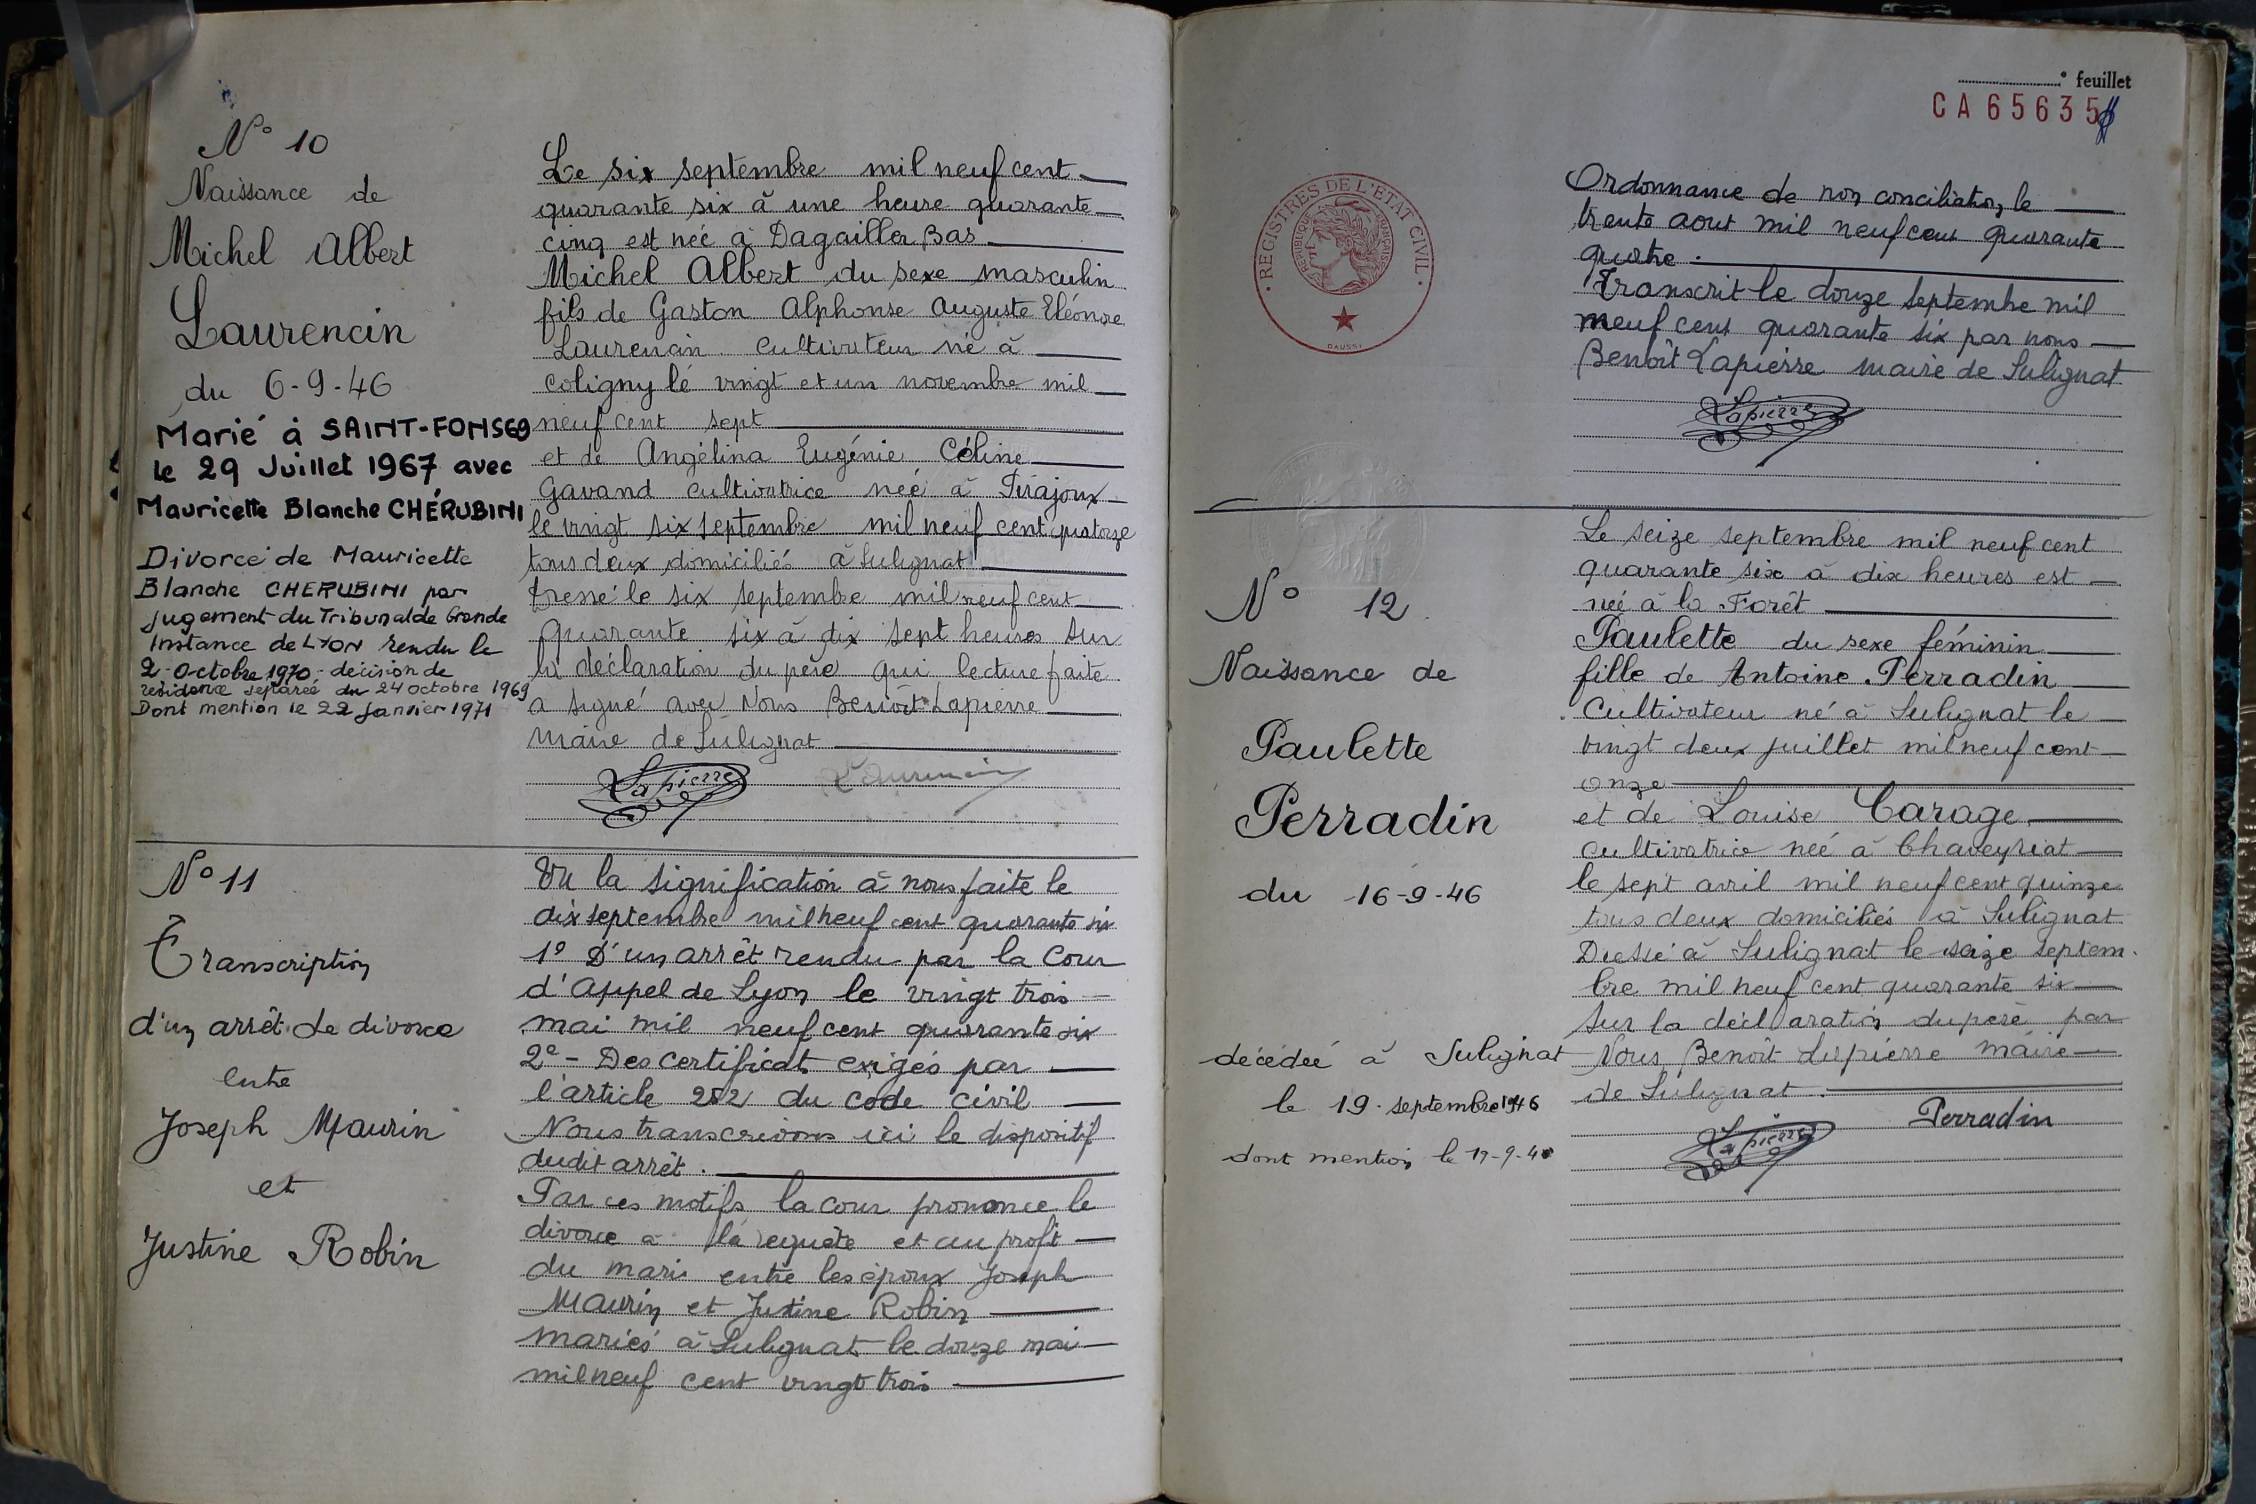 N° 10
Naissance de
Michel Albert
Laurencin
du 6-9-46
Marié à SAINT-FONS 69
le 29 Juillet 1967 avec
Mauricette Blanche CHÉRUBINI
Divorcé de Mauricette
Blanche CHERUBINI par
jugement du Tribunal de Grande
Instance de LYON rendu le
2 Octobre 1970 - décision de
résidence séparée du 24 octobre 1969
Dont mention le 22 janvier 1971
Le six septembre mil neuf cent
quarante six à une heure quarante
cinq est née à Dagailler Bas
Michel Albert du sexe masculin
fils de Gaston Alphonse Auguste Eléonore
Laurencin cultivateur né à
Coligny lé vingt et un novembre mil
neuf cent sept
et de Angèlina Eugénie Céline
Gavand cultivatrice née à Pirajoux
le vingt six septembre mil neuf cent quatorze
tous deux domiciliés à Sulignat
Dressé le six septembre mil neuf cent
quarante six à dix sept heures sur
la déclaration du père qui lecture faite
a signé avec Nous Benoît Lapierre
Maire de Sulignat
Lapierre Laurencin
N° 11
Transcription
d'un arrêt de divorce
entre
Joseph Maurin
et
Justine Robin
Vu la signification à nous faite le
dix septembre mil neuf cent quarante six
1° D'un arrêt rendu par la Cour
d'Appel de Lyon le vingt trois
mai mil neuf cent quarante six
2° - Des certificats exigés par
l'article 252 du code civil
Nous transcrivons ici le dispositif
dudit arrêt.
Par ces motifs la cour prononce le
divorce à la requête et au profit
du mari entre les époux Joseph
Maurin et Justine Robin
mariés à Sulignat le douze mai
mil neuf cent vingt trois
° feuillet
CA65635
REGISTRES DE L'ETAT CIVIL
REPUBLIQUE FRANÇAISE
DAUSSI
Ordonnance de non conciliation le
trente aout mil neuf cent quarante
quatre.
Transcrit le douze septembre mil
neuf cent quarante six par nous
Benoît Lapierre maire de Sulignat
Lapierre
N° 12
Naissance de
Paulette
Perradin
du 16-9-46
décédée à Sulignat
le 19 septembre 1946
dont mention le 19-9-46
Le seize septembre mil neuf cent
quarante six à dix heures est
née à la Forêt
Paulette du sexe féminin
fille de Antoine Perradin
Cultivateur né à Sulignat le
vingt deux juillet mil neuf cent
onze
et de Louise Carage
cultivatrice née à Chaveyriat
le sept avril mil neuf cent quinze
tous deux domiciliés à Sulignat
Dressé à Sulignat le seize septem-
bre mil neuf cent quarante six
sur la déclaration du père par
Nous Benoît Lapierre maire
de Sulignat.
Perradin
Lapierre